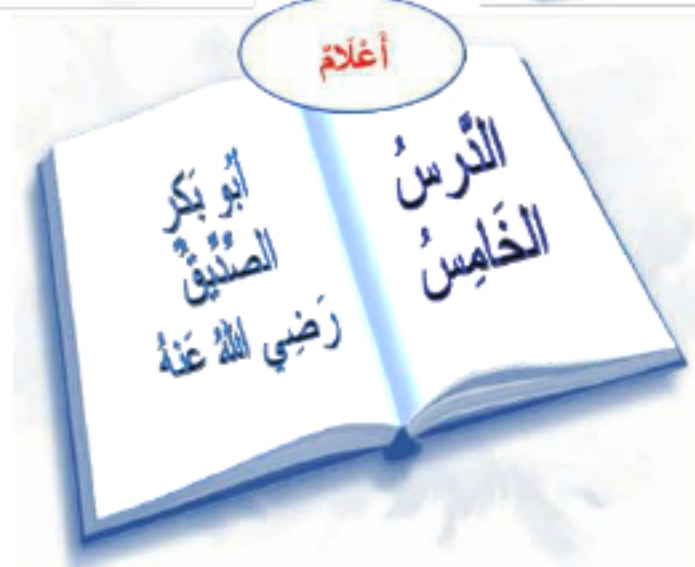 أَعْلَامٌ
الدَّرسُ
الخَامِسُ
أَبُو بَكر
الصِّدِّيقُ
رَضِي اللهُ عَنهُ